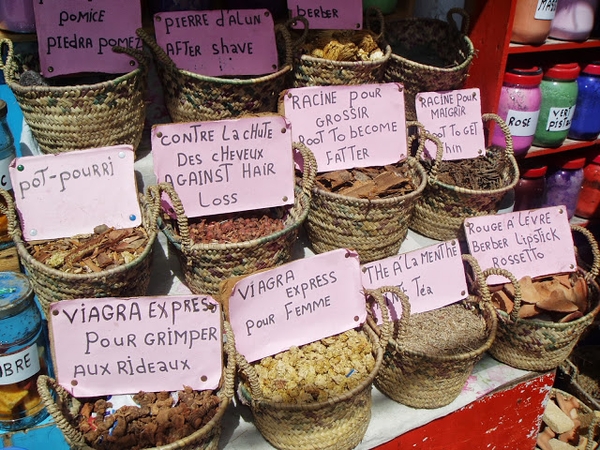 POMICE
PIEDRA POMEZ
PIERRE D'ALUN
AFTER SHAVE
BERBER
CONTRE LA CHUTE
DES CHEVEUX
AGAINST HAIR
LOSS
RACINE POUR
GROSSIR
ROOT TO BECOME
FATTER
RACINE POUR
MAIGRIR
ROOT TO GET
THIN
POT-POURRI
VIAGRA EXPRESS
POUR GRIMPER
AUX RIDEAUX
VIAGRA
EXPRESS
POUR FEMME
THE A LA MENTHE
Téa
ROUGE A LEVRE
BERBER LIPSTICK
ROSSETTO
ROSE
VERT
MUSC
BRE